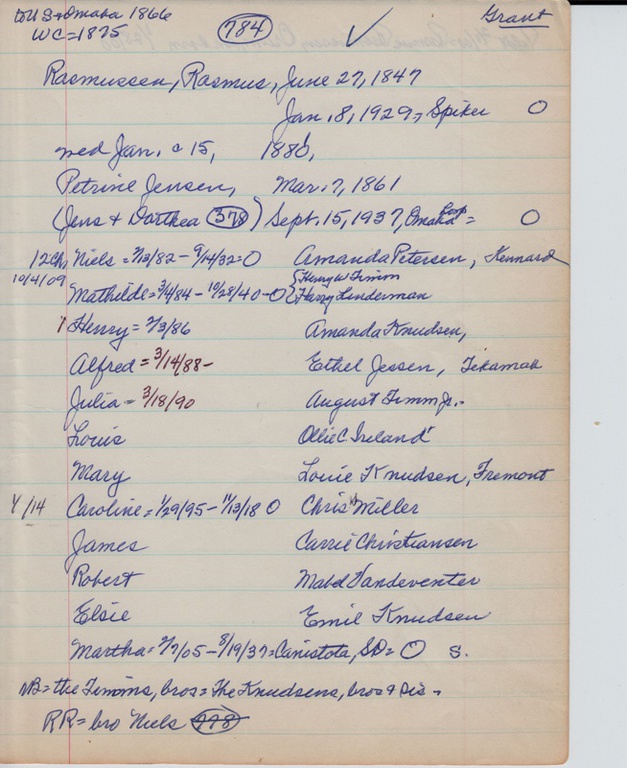 to US + Omaha 1866
WC = 1875
784
✓
Grant
Rasmussen, Rasmus, June 27, 1847
Jan. 8, 1929, Spiker O
med Jan. 15, 1880,
Petrine Jensen, Mar. 7, 1861
(Jens + Dorthea 378) Sept. 15, 1937, Omaha Hosp = O
12 Ch, Niels = 7/3/82 - 9/14/32 = O Amanda Petersen, Kennard
10/4/09 Mathilde = 3/4/84 - 10/28/40 - O { Henry W Timm
Harry Linderman
Henry = 2/3/86 Amanda Knudsen,
Alfred = 3/14/88 - Ethel Jessen, Tekamah
Julia = 3/18/90 August Timm Jr. -
Louis Ollie C Ireland
Mary Louie Knudsen, Fremont
4/14 Caroline = 1/29/95 - 11/13/18 O Chris Miller
James Carrie Christiansen
Robert Mabel Vandeventer
Elsie Emil Knudsen
Martha = 2/7/05 - 8/19/37 = Canistota, SD = O S.
NB = the Timms, bros = The Knudsens, bros + sis -
RR = bro Niels 778